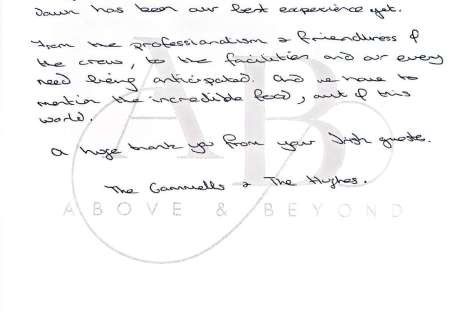 Dawn has been our best experience yet.
From the professionalism & friendliness of
the crew, to the facilities and our every
need being anticipated. And we have to
mention the incredible food, out of this
world.
A huge thank you from your Irish guests.
The Gannells & The Hughes.
AB
ABOVE & BEYOND